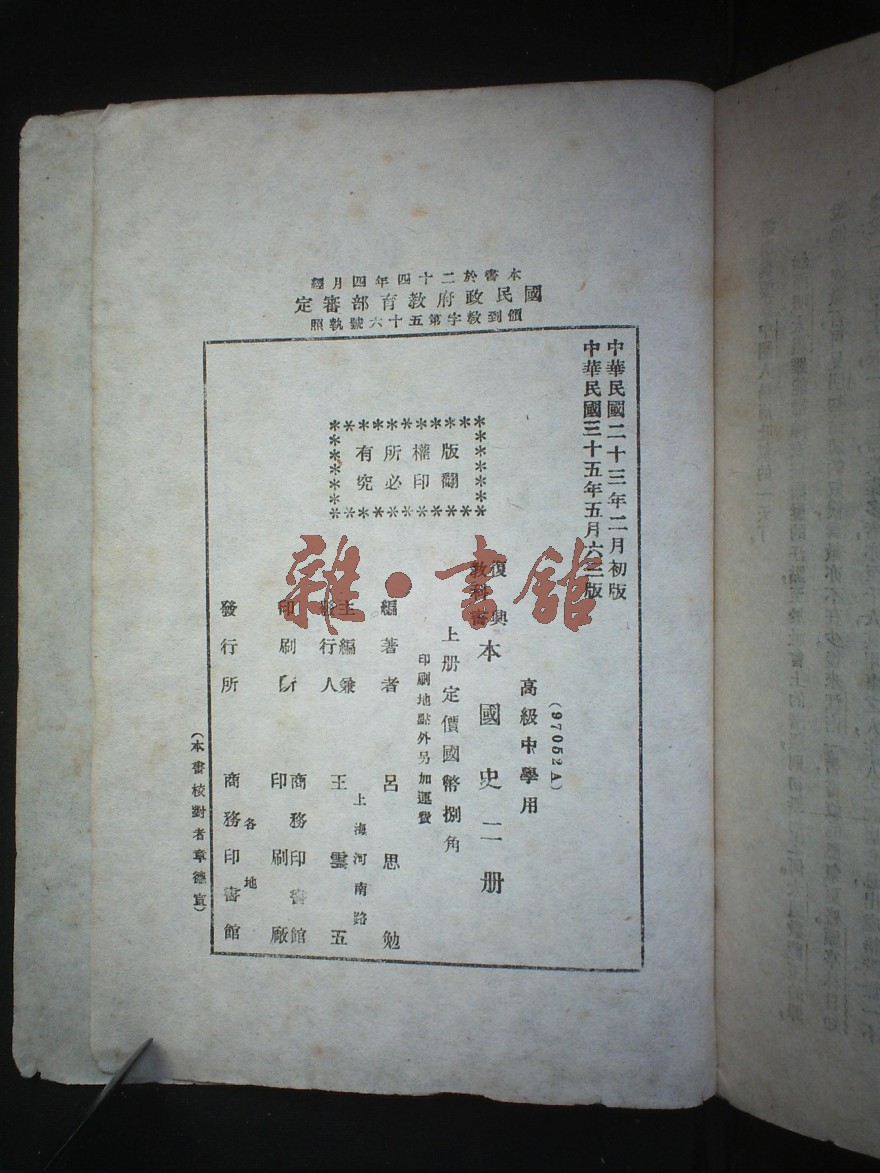 本書於二十四年四月經
國民政府教育部審定
領到教字第五十六號執照
中華民國二十三年二月初版
中華民國三十五年五月六三版
版權所有
翻印必究
(97052A)
高級中學用
復興
教科書
本國史二册
上册定價國幣捌角
印刷地點外另加運費
編著者 呂思勉
上海河南路
主編兼
發行人
王雲五
印刷所
商務印書館
印刷廠
各地
發行所 商務印書館
(本書校對者章德宣)
雜·書館